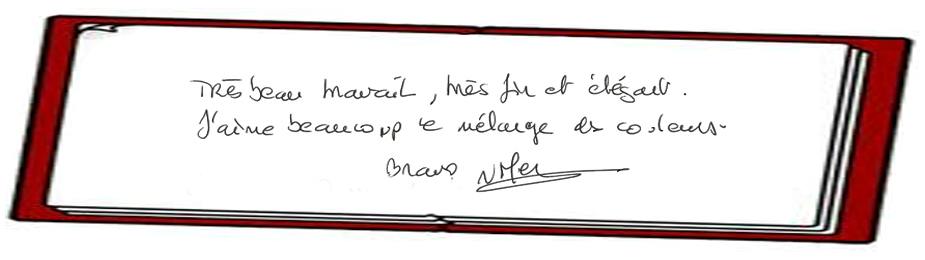 Très beau travail, très fin et élégant.
J'aime beaucoup le mélange des couleurs.
Bravo